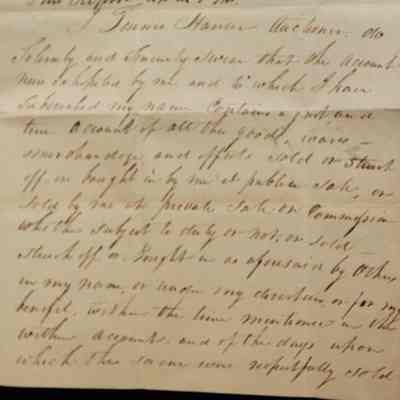 Auctioneer do
Solemnly and Sincerely swear that the account
now exhibited by me and to which I have
Subscribed my name Contains a just and
true account of all the goods, wares
merchandize, and effects sold or Struck
off, or bought in by me at publick Sale, or
Sold by me at private Sale on Commission
whether subject to duty or not, or sold
struck off or Bought in as aforesaid by Others
in my name, or under my direction, or for my
benefit, within the time mentioned in the
within accounts and of the days upon
which the same were respectfully sold